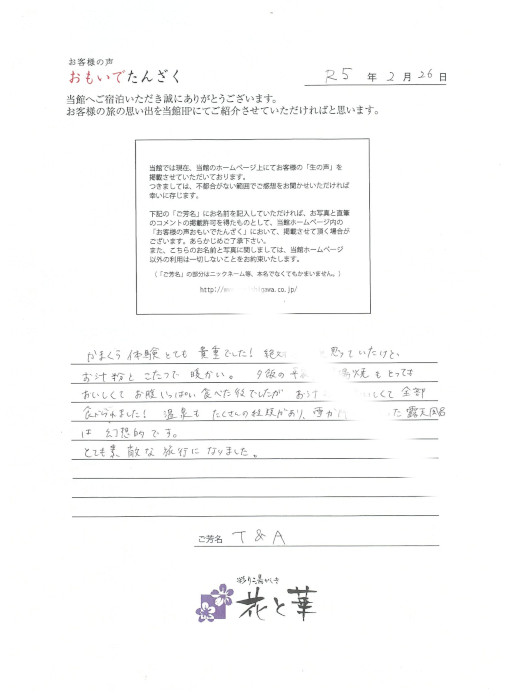 お客様の声
おもいでたんざく
R5 年 2 月 26 日
当館へご宿泊いただき誠にありがとうございます。
お客様の旅の思い出を当館HPにてご紹介させていただければと思います。
当館では現在、当館のホームページ上にてお客様の「生の声」を
掲載させていただいております。
つきましては、不都合がない範囲でご感想をお聞かせいただければ
幸いに存じます。
下記の「ご芳名」にお名前を記入していただければ、お写真と直筆
のコメントの掲載許可を得たものとして、当館ホームページ内の
「お客様の声おもいでたんざく」において、掲載させて頂く場合が
ございます。あらかじめご了承下さい。
また、こちらのお名前と写真に関しましては、当館ホームページ
以外の利用は一切しないことをお約束いたします。
（「ご芳名」の部分はニックネーム等、本名でなくてもかまいません。）
http://w
awa.co.jp/
かまくら体験とても貴重でした！ 思っていたけど、
お汁粉とこたつで暖かい。夕飯の 焼もとっても
おいしくてお腹いっぱい食べた後でしたが お汁 いしくて全部
食べられました！温泉もたくさんの種類があり、雪が た露天風呂
は幻想的です。
とても素敵な旅行になりました。
ご芳名 T & A
彩り湯かしき
花と華